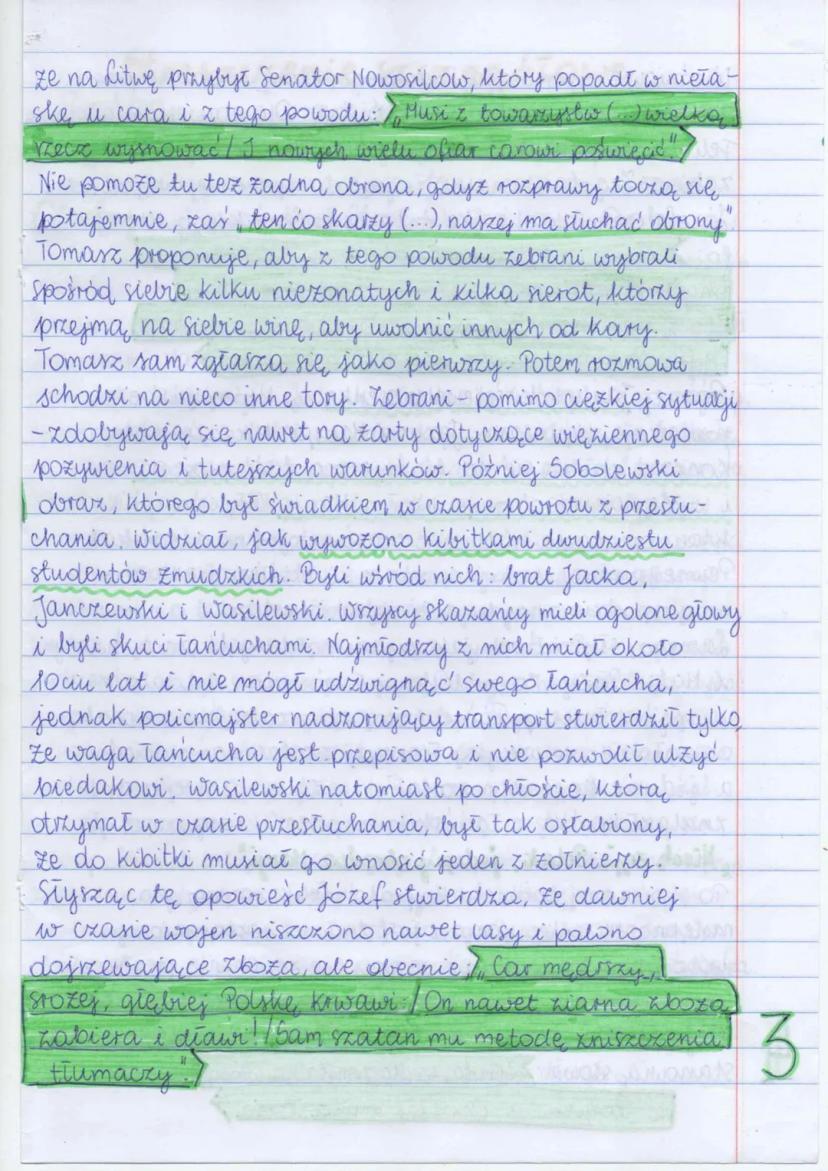 że na Litwę przybył Senator Nowosilcow, który popadł w nieła-
skę u cara i z tego powodu: „Musi z towarzystw (...) wielką
rzecz wysnować / I nowych wielu ofiar carowi poświęcić".
Nie pomoże tu też żadna obrona, gdyż rozprawy toczą się
potajemnie, zaś „ten co skarży (...), naszej ma słuchać obrony"
Tomasz proponuje, aby z tego powodu zebrani wybrali
spośród siebie kilku nieżonatych i kilka sierot, którzy
przejmą na siebie winę, aby uwolnić innych od kary.
Tomasz sam zgłasza się jako pierwszy. Potem rozmowa
schodzi na nieco inne tory. Zebrani - pomimo ciężkiej sytuacji
- zdobywają się nawet na żarty dotyczące więziennego
pożywienia i tutejszych warunków. Później Sobolewski
obraz, którego był świadkiem w czasie powrotu z przesłu-
chania. Widział, jak wywożono kibitkami dwudziestu
studentów żmudzkich. Byli wśród nich: brat Jacka,
Janczewski i Wasilewski. Wszyscy skazańcy mieli ogolone głowy
i byli skuci łańcuchami. Najmłodszy z nich miał około
10ciu lat i nie mógł udźwignąć swego łańcucha,
jednak policmajster nadzorujący transport stwierdził tylko,
że waga łańcucha jest przepisowa i nie pozwolił ulżyć
biedakowi. Wasilewski natomiast po chłoście, którą
otrzymał w czasie przesłuchania, był tak osłabiony,
że do kibitki musiał go wnosić jeden z żołnierzy.
Słysząc tę opowieść Józef stwierdza, że dawniej
w czasie wojen niszczono nawet lasy i palono
dojrzewające zboża, ale obecnie: „Car mędrszy,
srożej, głębiej Polskę krwawi: / On nawet ziarna zboża
zabiera i dławi! / Sam szatan mu metodę zniszczenia
tłumaczy".
3